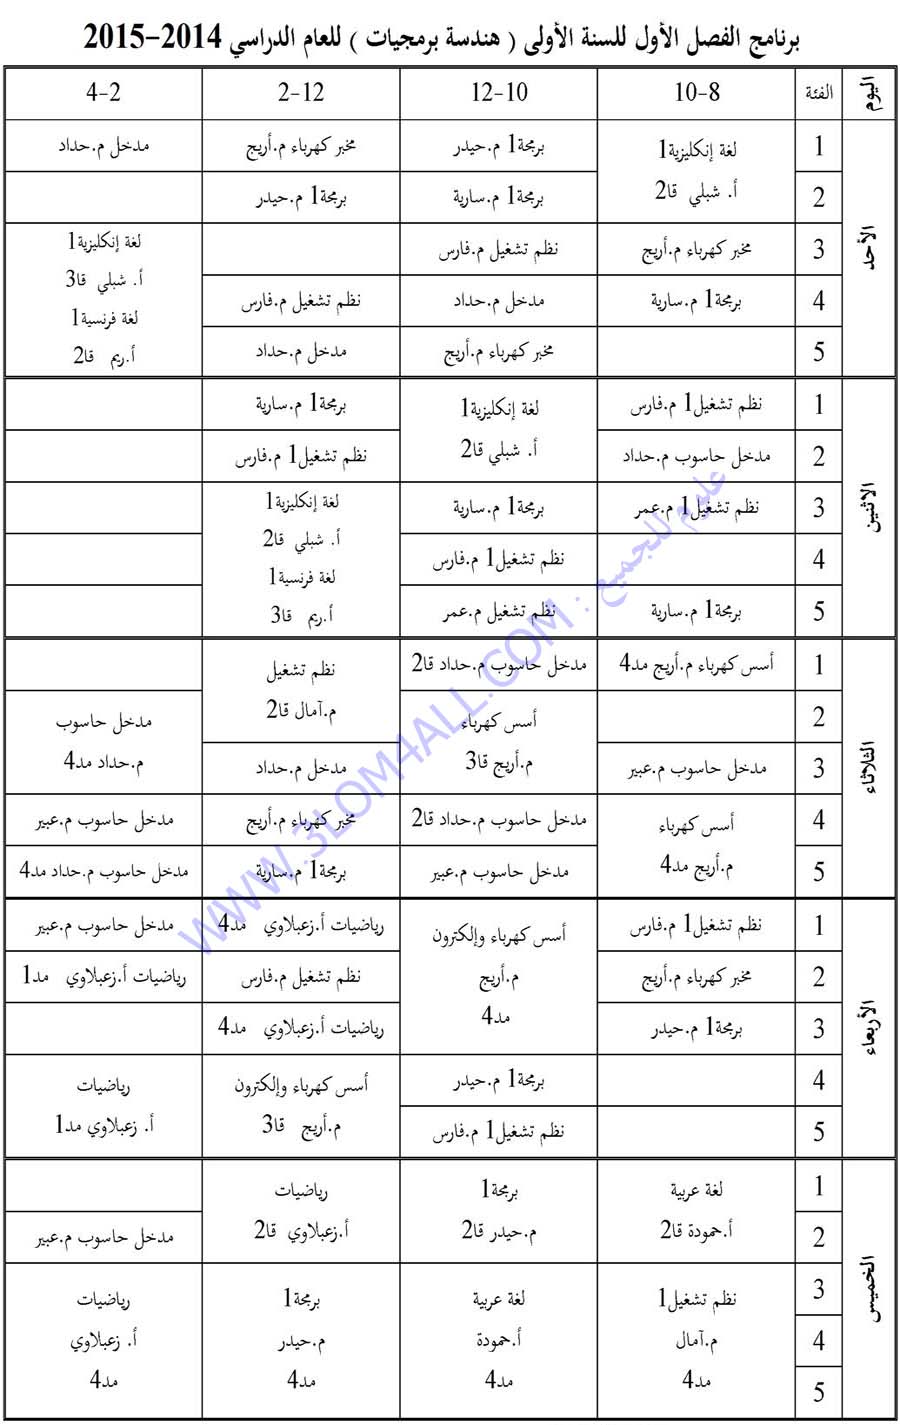 برنامج الفصل الأول للسنة الأولى ( هندسة برمجيات ) للعام الدراسي 2014-2015
اليوم الفئة 8-10 10-12 12-2 2-4
الأحد
1 لغة إنكليزية1 برمجة1 م.حيدر مخبر كهرباء م.أريج مدخل م.حداد
2 أ. شبلي قا2 برمجة1 م.سارية برمجة1 م.حيدر
3 مخبر كهرباء م.أريج نظم تشغيل م.فارس لغة إنكليزية1
أ. شبلي قا3
4 برمجة1 م.سارية مدخل م.حداد نظم تشغيل م.فارس لغة فرنسية1
5 مخبر كهرباء م.أريج مدخل م.حداد أ.ريم قا2
الاثنين
1 نظم تشغيل1 م.فارس لغة إنكليزية1 برمجة1 م.سارية
2 مدخل حاسوب م.حداد أ. شبلي قا2 نظم تشغيل1 م.فارس
3 نظم تشغيل1 م.عمر برمجة1 م.سارية لغة إنكليزية1
أ. شبلي قا2
4 نظم تشغيل1 م.فارس لغة فرنسية1
5 برمجة1 م.سارية نظم تشغيل م.عمر أ.ريم قا3
الثلاثاء
1 أسس كهرباء م.أريج مد4 مدخل حاسوب م.حداد قا2 نظم تشغيل
2 أسس كهرباء م.آمال قا2 مدخل حاسوب
3 مدخل حاسوب م.عبير م.أريج قا3 مدخل م.حداد م.حداد مد4
4 أسس كهرباء مدخل حاسوب م.حداد قا2 مخبر كهرباء م.أريج مدخل حاسوب م.عبير
5 م.أريج مد4 مدخل حاسوب م.عبير برمجة1 م.سارية مدخل حاسوب م.حداد مد4
الأربعاء
1 نظم تشغيل1 م.فارس أسس كهرباء وإلكترون رياضيات أ.زعبلاوي مد4 مدخل حاسوب م.عبير
2 مخبر كهرباء م.أريج م.أريج نظم تشغيل م.فارس رياضيات أ.زعبلاوي مد1
3 برمجة1 م.حيدر مد4 رياضيات أ.زعبلاوي مد4
4 برمجة1 م.حيدر أسس كهرباء وإلكترون رياضيات
5 نظم تشغيل1 م.فارس م.أريج قا3 أ. زعبلاوي مد1
الخميس
1 لغة عربية برمجة1 رياضيات
2 أ.حمودة قا2 م.حيدر قا2 أ.زعبلاوي قا2 مدخل حاسوب م.عبير
3 نظم تشغيل1 لغة عربية برمجة1 رياضيات
4 م.آمال أ.حمودة م.حيدر أ. زعبلاوي
5 مد4 مد4 مد4 مد4
علوم للجميع : WWW.3LOM4ALL.COM